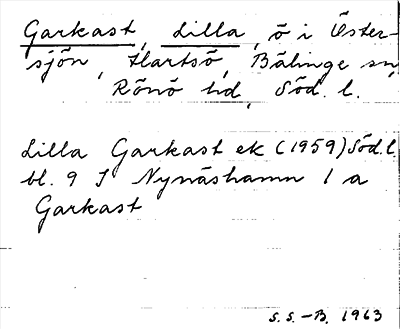 Garkast, Lilla, ö i Öster-
sjön, Hartsö, Bälinge sn,
Rönö hd, Söd. l.
Lilla Garkast ek (1959) Söd.l.
bl. 9 J Nynäshamn 1 a
Garkast
S. S.-B. 1963